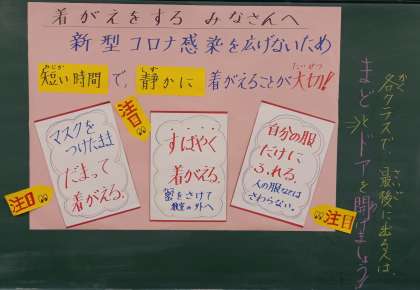 着がえをする みなさんへ
新型コロナ感染を広げないため
みじか しず たいせつ
短い時間で、静かに 着がえることが大切!!
注目
マスクを
つけたまま
だまって
着がえる。
注目
すばやく
着がえる。
密をさけて
教室の外へ
自分の服
だけに
ふれる。
人の服などは
さわらない。
注目
かく さいご
各クラスで、最後に出る人は、
まどとドアを開けましょう!